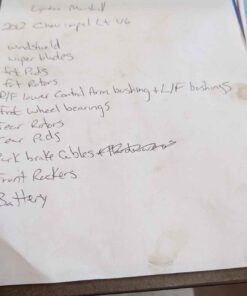 2012 Chev impal Lt V6
windshield
wiper blades
frt Pads
frt Rotors
R/F Lower Control Arm bushing + L/F bushings
frnt Wheel bearings
rear Rotors
rear Pads
Park brake Cables
Front Rockers
Battery